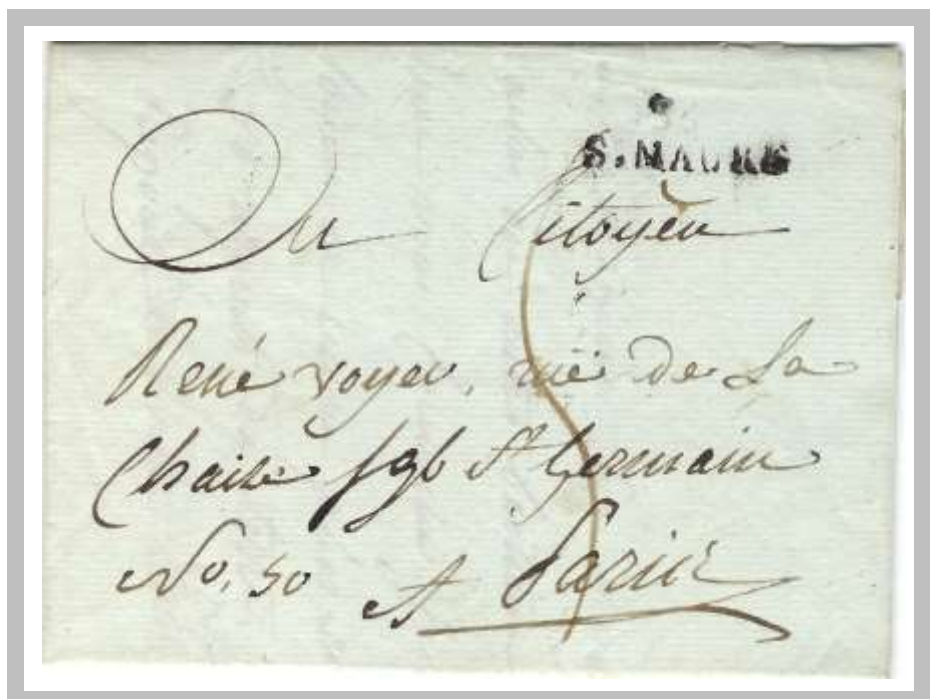 S. MAURE
Au Citoyen
René voyer, rüe de La
Chaise fgb St Germain
No. 50
A Paris